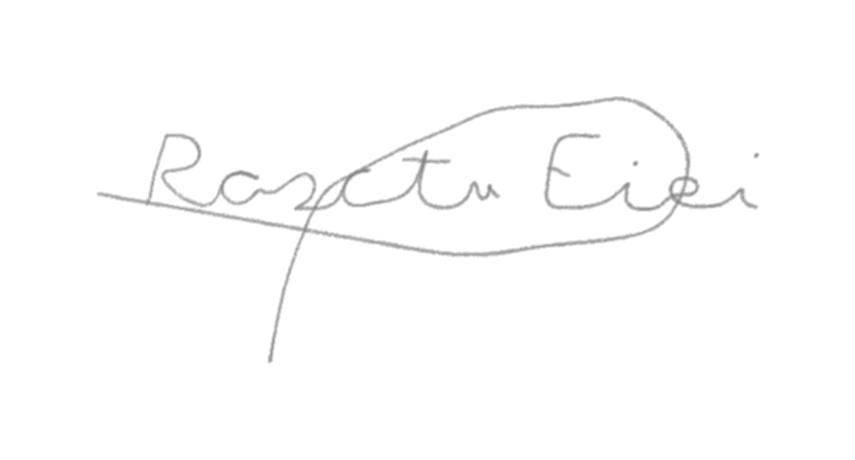 Razctu Eiei